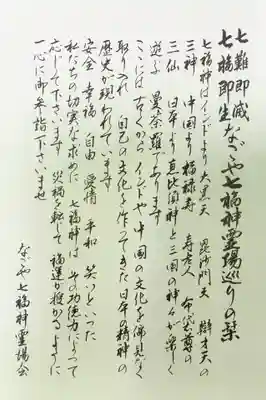 七難即滅
七福即生
なごや七福神霊場巡りの栞
七福神はインドより大黒天 毘沙門天 辯才天の
三神 中国より福禄寿 寿老人 布袋尊の
三仙 日本より恵比須神と三国の神々が楽しく
遊ぶ 曼荼羅であります
ここには 古くからインドや中国の文化を偏見なく
取り入れ 自己の文化を作ってきた日本の精神の
歴史が現われています
安全 幸福 自由 愛情 平和 笑いといった
私たちの切実な求めに 七福神は その功徳力によって
応じて下さいます 災禍を転じて 福運が授かるように
一心に御参詣下さいませ
なごや七福神霊場会